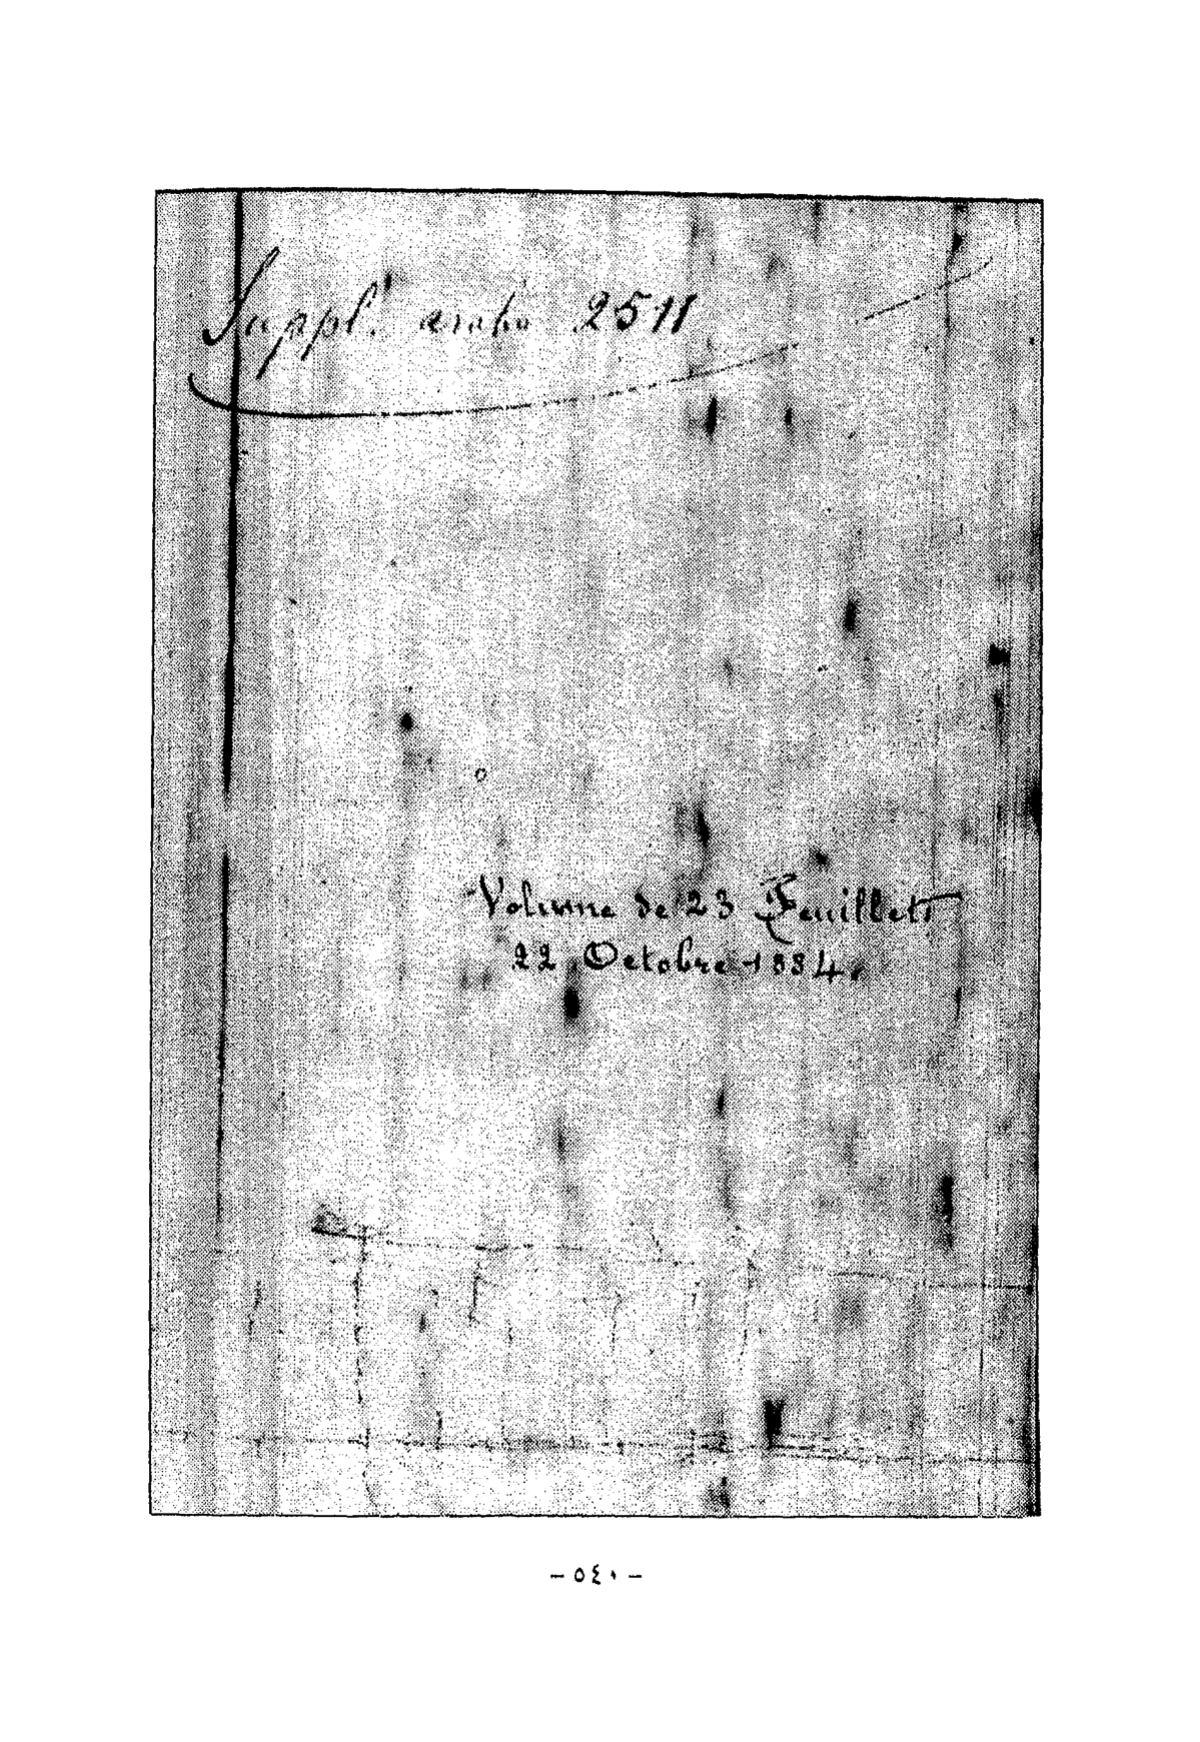 Suppl.t arabe 2511
Volume de 23 Feuillets
22 Octobre 1884.
– ٥٤٠ –